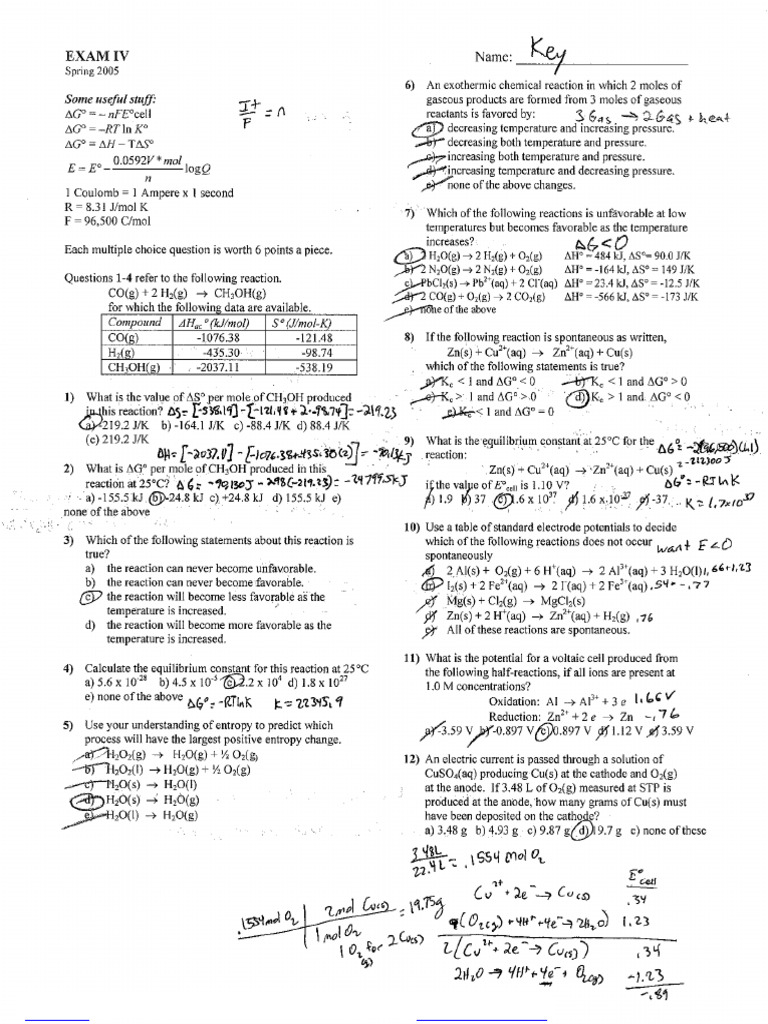 EXAM IV
Spring 2005
Name: Key
Some useful stuff:
ΔG° = – nFE°cell
ΔG° = –RT ln K°
ΔG° = ΔH – TΔS°
E = E° – 0.0592V * mol / n logQ
1 Coulomb = 1 Ampere x 1 second
R = 8.31 J/mol K
F = 96,500 C/mol
It/F = n
Each multiple choice question is worth 6 points a piece.
Questions 1-4 refer to the following reaction.
CO(g) + 2 H₂(g) → CH₃OH(g)
for which the following data are available.
Compound ΔHac° (kJ/mol) S° (J/mol-K)
CO(g) -1076.38 -121.48
H₂(g) -435.30 -98.74
CH₃OH(g) -2037.11 -538.19
1) What is the value of ΔS° per mole of CH₃OH produced
in this reaction? ΔS = [-538.19] - [-121.48 + 2·-98.74] = -219.23
(a) -219.2 J/K b) -164.1 J/K c) -88.4 J/K d) 88.4 J/K
(e) 219.2 J/K
ΔH = [-2037.11] - [-1076.38+435.30(2)] = -90.13kJ
2) What is ΔG° per mole of CH₃OH produced in this
reaction at 25°C? ΔG = -90,130J - 298(-219.23) = -24799.5kJ
a) -155.5 kJ (b) -24.8 kJ c) +24.8 kJ d) 155.5 kJ e)
none of the above
3) Which of the following statements about this reaction is
true?
a) the reaction can never become unfavorable.
b) the reaction can never become favorable.
c) the reaction will become less favorable as the
temperature is increased.
d) the reaction will become more favorable as the
temperature is increased.
4) Calculate the equilibrium constant for this reaction at 25°C
a) 5.6 x 10⁻²⁸ b) 4.5 x 10⁻⁵ c) 2.2 x 10⁴ d) 1.8 x 10²⁷
e) none of the above ΔG° = -RTlnK K = 22345.9
5) Use your understanding of entropy to predict which
process will have the largest positive entropy change.
a) H₂O₂(g) → H₂O(g) + ½ O₂(g)
b) H₂O₂(l) → H₂O(g) + ½ O₂(g)
c) H₂O(s) → H₂O(l)
d) H₂O(s) → H₂O(g)
e) H₂O(l) → H₂O(g)
6) An exothermic chemical reaction in which 2 moles of
gaseous products are formed from 3 moles of gaseous
reactants is favored by: 3 Gas → 2 Gas + heat
a) decreasing temperature and increasing pressure.
b) decreasing both temperature and pressure.
c) increasing both temperature and pressure.
d) increasing temperature and decreasing pressure.
e) none of the above changes.
7) Which of the following reactions is unfavorable at low
temperatures but becomes favorable as the temperature
increases? ΔG<0
a) 2 H₂O(g) → 2 H₂(g) + O₂(g) ΔH° = 484 kJ, ΔS°= 90.0 J/K
b) 2 N₂O(g) → 2 N₂(g) + O₂(g) ΔH° = -164 kJ, ΔS° = 149 J/K
c) PbCl₂(s) → Pb²⁺(aq) + 2 Cl⁻(aq) ΔH° = 23.4 kJ, ΔS° = -12.5 J/K
d) 2 CO(g) + O₂(g) → 2 CO₂(g) ΔH° = -566 kJ, ΔS° = -173 J/K
e) none of the above
8) If the following reaction is spontaneous as written,
Zn(s) + Cu²⁺(aq) → Zn²⁺(aq) + Cu(s)
which of the following statements is true?
a) Kc < 1 and ΔG° < 0 b) Kc < 1 and ΔG° > 0
c) Kc > 1 and ΔG° > 0 d) Kc > 1 and ΔG° < 0
e) Kc < 1 and ΔG° = 0
9) What is the equilibrium constant at 25°C for the ΔG° = -2(96,500)(1.1)
reaction: = -212300J
Zn(s) + Cu²⁺(aq) → Zn²⁺(aq) + Cu(s)
if the value of E°cell is 1.10 V? ΔG° = -RTlnK
a) 1.9 b) 37 c) 1.6 x 10³⁷ d) 1.6 x 10⁻³⁷ e) -37 K = 1.7x10³⁷
10) Use a table of standard electrode potentials to decide
which of the following reactions does not occur want E<0
spontaneously
a) 2 Al(s) + O₂(g) + 6 H⁺(aq) → 2 Al³⁺(aq) + 3 H₂O(l) 1.66+1.23
b) I₂(s) + 2 Fe²⁺(aq) → 2 I⁻(aq) + 2 Fe³⁺(aq) .54 - .77
c) Mg(s) + Cl₂(g) → MgCl₂(s)
d) Zn(s) + 2 H⁺(aq) → Zn²⁺(aq) + H₂(g) .76
e) All of these reactions are spontaneous.
11) What is the potential for a voltaic cell produced from
the following half-reactions, if all ions are present at
1.0 M concentrations?
Oxidation: Al → Al³⁺ + 3 e 1.66V
Reduction: Zn²⁺ + 2 e → Zn -.76
a) -3.59 V b) -0.897 V c) 0.897 V d) 1.12 V e) 3.59 V
12) An electric current is passed through a solution of
CuSO₄(aq) producing Cu(s) at the cathode and O₂(g)
at the anode. If 3.48 L of O₂(g) measured at STP is
produced at the anode, how many grams of Cu(s) must
have been deposited on the cathode?
a) 3.48 g b) 4.93 g c) 9.87 g d) 19.7 g e) none of these
3.48L / 22.4L = .1554 mol O₂
.1554 mol O₂ | 2 mol Cu(s) / 1 mol O₂ = 19.75g
1 O₂(g) for 2 Cu(s)
E°cell
Cu²⁺ + 2e⁻ → Cu(s) .34
(O₂(g) + 4H⁺ + 4e⁻ → 2H₂O) 1.23
2(Cu²⁺ + 2e⁻ → Cu(s)) .34
2H₂O → 4H⁺ + 4e⁻ + O₂(g) -1.23
-.89